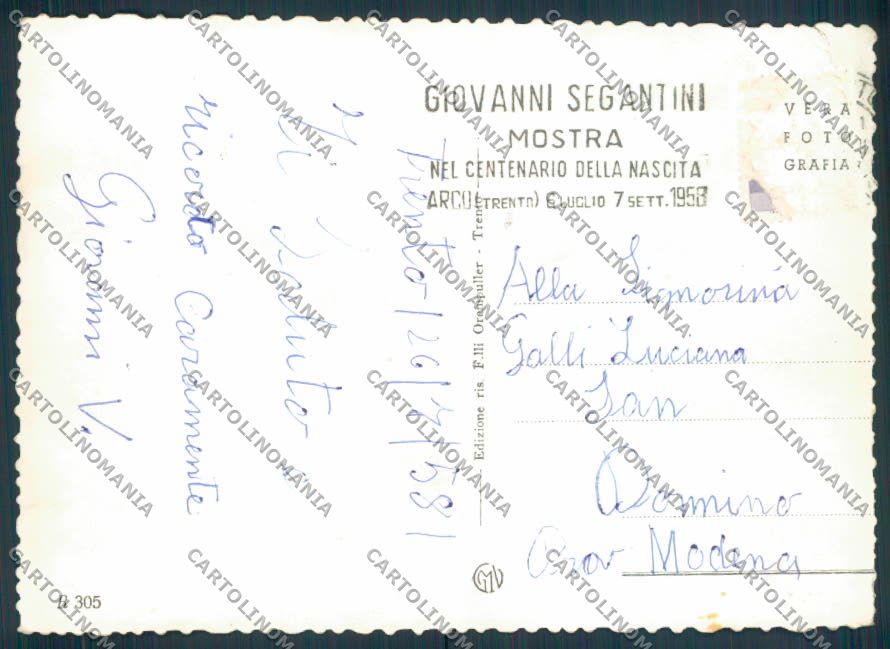 GIOVANNI SEGANTINI
MOSTRA
NEL CENTENARIO DELLA NASCITA
ARCO (TRENTO) 6 LUGLIO 7 SETT. 1958
VERA
FOTO
GRAFIA
Trento 26/7/58
Ti Saluto e
ricordo Caramente
Giovanni V.
Edizione ris. F.lli Orempuller - Trento
Alla Signorina
Galli Luciana
San
Damino
Prov Modena
R 305
CARTOLINOMANIA